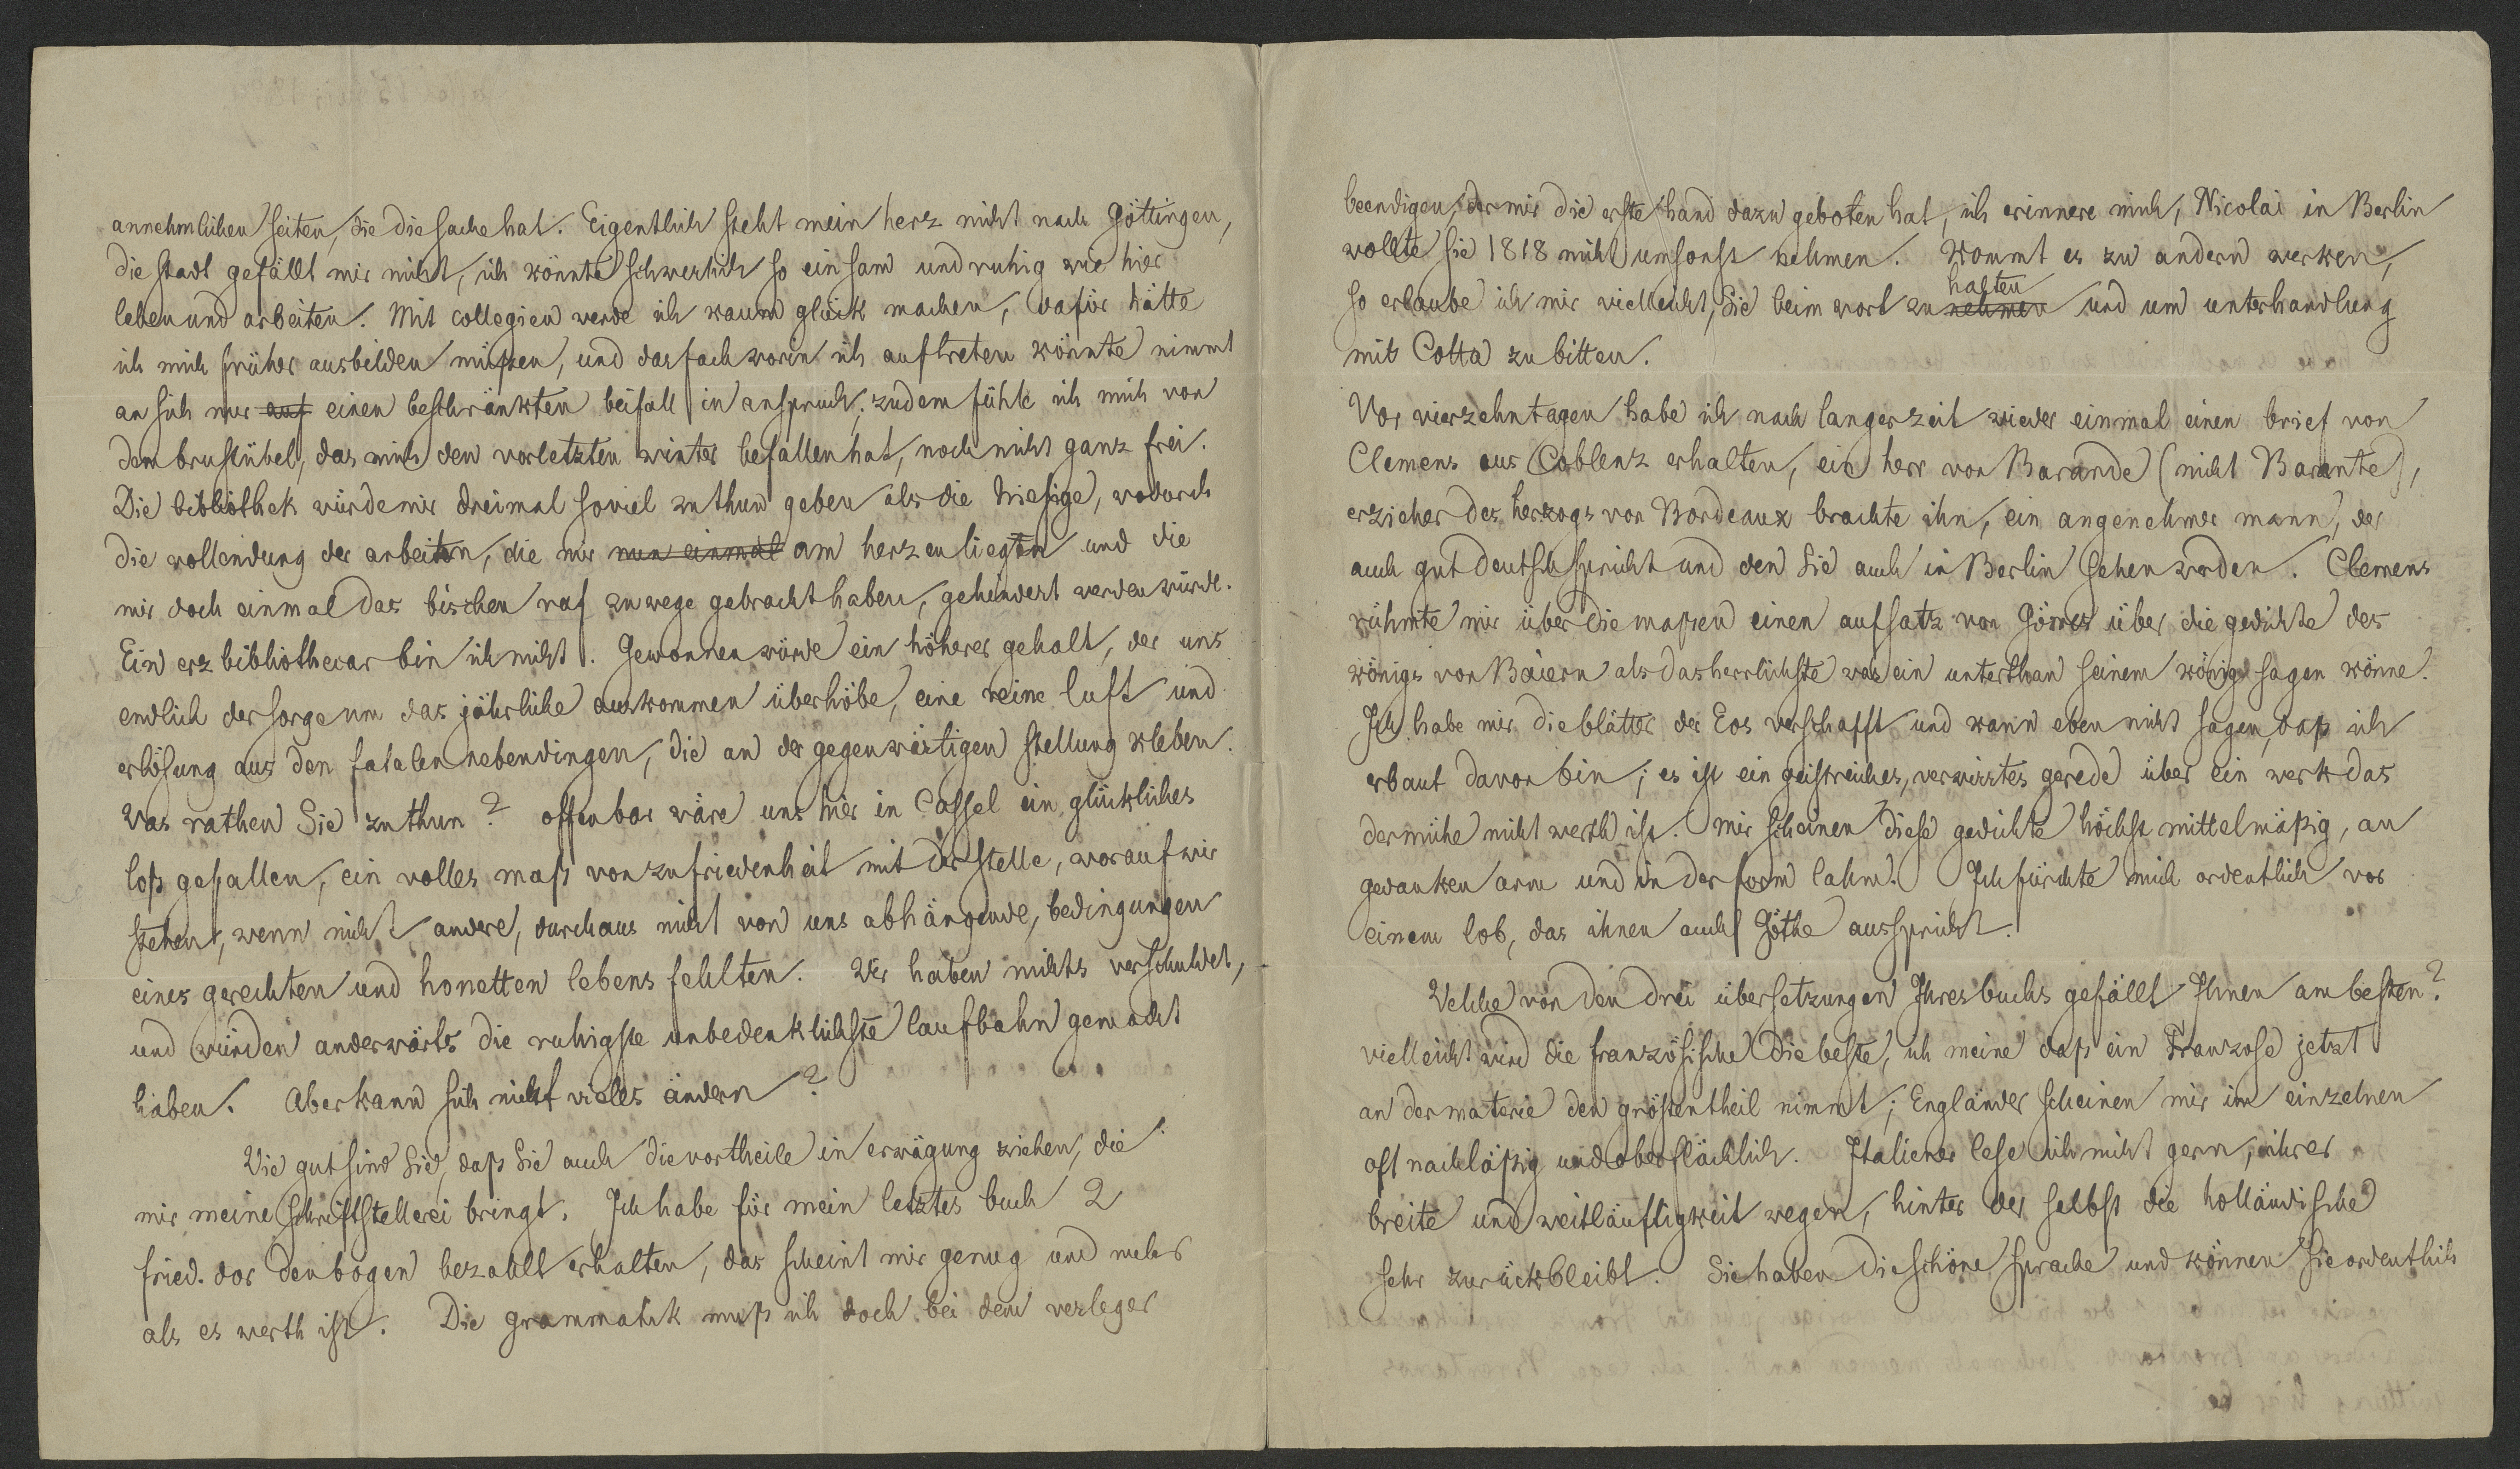 annehmlichen seiten, die die sache hat. Eigentlich steht mein herz nicht nach Göttingen,
die stadt gefällt mir nicht, ich könnte schwerlich so einsam und ruhig wie hier
leben und arbeiten. Mit collegien werde ich kaum glück machen, dafür hätte
ich mich früher ausbilden müßen, und das fach worin ich auftreten könnte nimmt
an sich nur auf einen beschränkten beifall in anspruch; zudem fühle ich mich von
dem brustübel, das mich den vorletzten winter befallen hat, noch nicht ganz frei.
Die bibliothek würde mir dreimal soviel zu thun geben als die hiesige, wodurch
die vollendung der arbeiten, die mir nun einmal am herzen liegen und die
mir doch einmal das bischen ruf zuwege gebracht haben, gehindert werden würde.
Ein erzbibliothecar bin ich nicht. Gewonnen würde ein höherer gehalt, der uns
endlich der sorge um das jährliche auskommen überhöbe, eine reine luft und
erlösung aus den fatalen nebendingen, die an der gegenwärtigen stellung kleben.
Was rathen Sie zu thun? offenbar wäre uns hier in Cassel ein glückliches
loß gefallen, ein volles maß von zufriedenheit mit der stelle, worauf wir
stehen, wenn nicht andere, durchaus nicht von uns abhängende, bedingungen
eines gerechten und honetten lebens fehlten. Wir haben nichts verschuldet,
und würden anderwärts die ruhigste unbedenklichste laufbahn gemacht
haben. Aber kann sich nicht vieles ändern?
Wie gut sind Sie, daß Sie auch die vortheile in erwägung ziehen, die
mir meine schriftstellerei bringt. Ich habe für mein letztes buch 2
fried. dor den bogen bezahlt erhalten, das scheint mir genug und mehr
als es werth ist. Die grammatik muß ich doch bei dem verleger
beendigen, der mir die erste hand dazu geboten hat, ich erinnere mich, Nicolai in Berlin
wollte sie 1818 nicht umsonst nehmen. Kommt es zu andern werken,
so erlaube ich mir vielleicht, Sie beim wort zu nehmen halten und um unterhandlung
mit Cotta zu bitten.
Vor vierzehn tagen habe ich nach langer zeit wieder einmal einen brief von
Clemens aus Coblenz erhalten, ein herr von Barande (nicht Barante),
erzieher des herzogs von Bordeaux brachte ihn, ein angenehmer mann, der
auch gut deutsch spricht und den Sie auch in Berlin sehen werden. Clemens
rühmte mir über die maßen einen aufsatz von Görres über die gedichte des
königs von Baiern als das herrlichste was ein unterthan seinem könig sagen könne.
Ich habe mir die blätter der Eos verschafft und kann eben nicht sagen, daß ich
erbaut davon bin; es ist ein geistreiches, verwirrtes gerede über ein werk das
der mühe nicht werth ist. mir scheinen diese gedichte höchst mittelmäßig, an
gedanken arm und in der form lahm. Ich fürchte mich ordentlich vor
einem lob, das ihnen auch Göthe ausspricht.
Welche von den drei übersetzungen Ihres buchs gefällt Ihnen am besten?
vielleicht wird die französische die beste, ich meine daß ein Franzose jetzt
an der materie den grösten theil nimmt; Engländer scheinen mir im einzelnen
oft nachläßig und oberflächlich. Italiener lese ich nicht gern, ihrer
breite und weitläuftigkeit wegen, hinter der selbst die holländische
sehr zurückbleibt. Sie haben die schöne sprache und können sie ordentlich